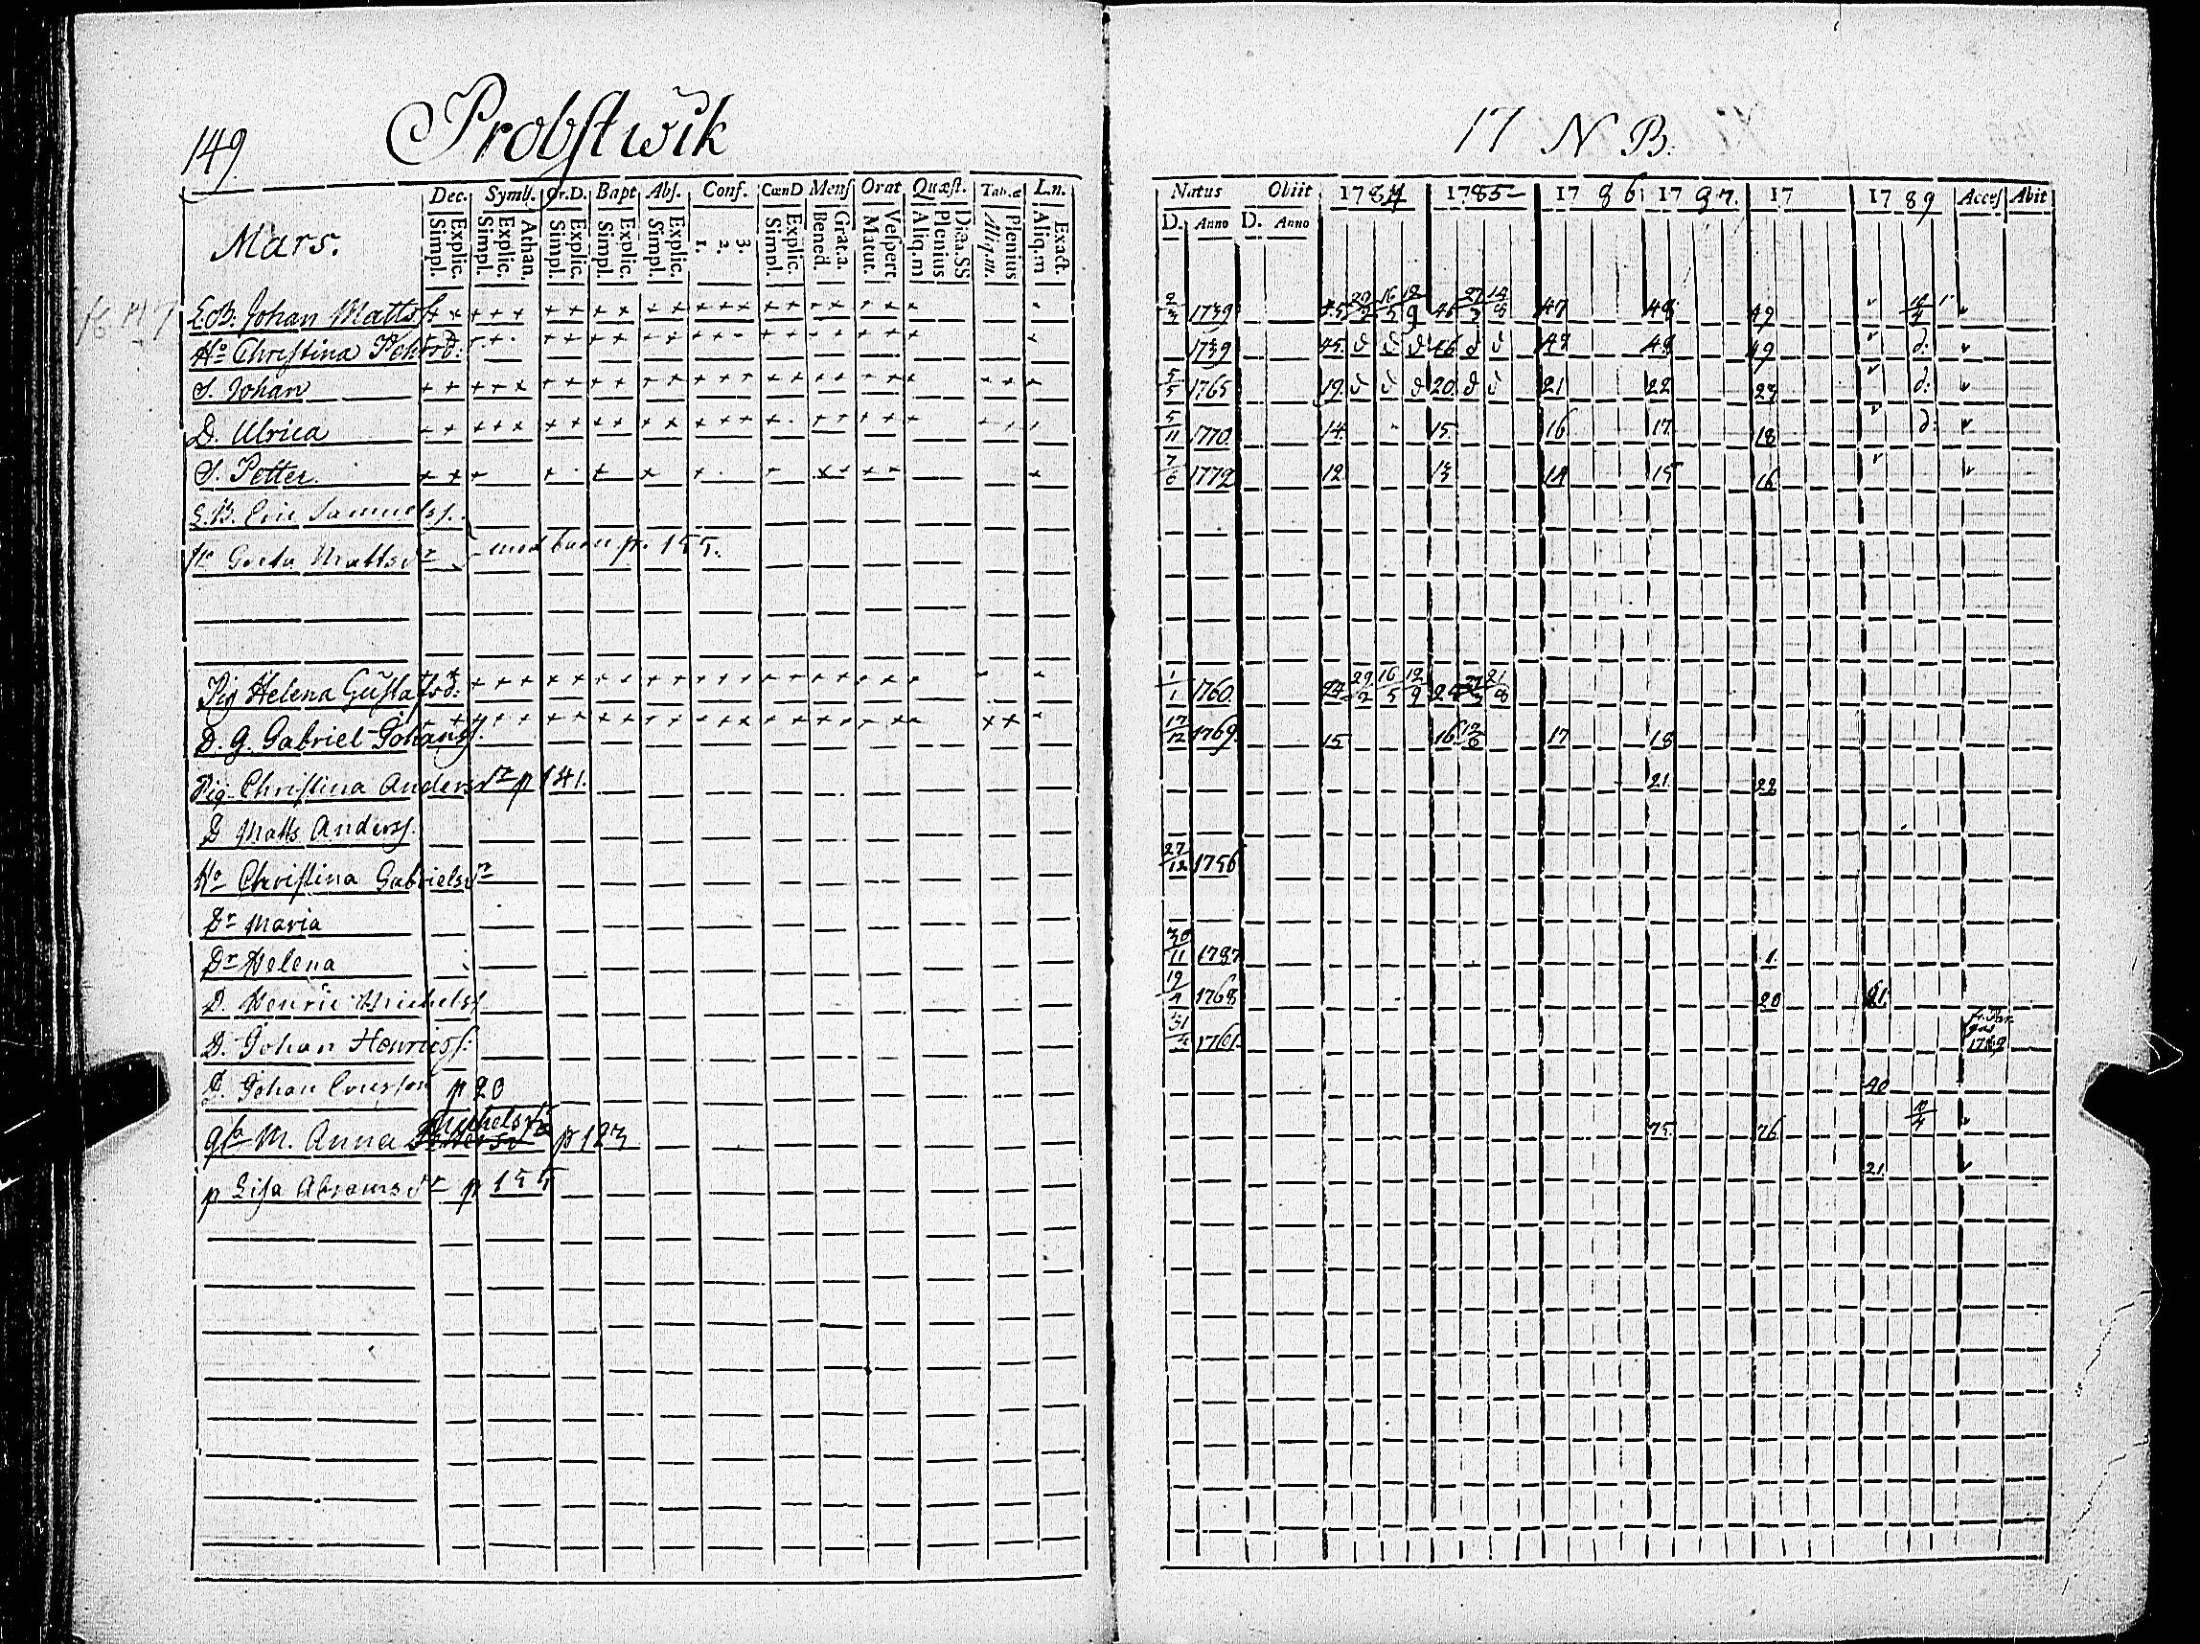 149.
Probstwik
17 N B.
Mars.
Dec. Symb. Or.D. Bapt Abs. Conf. CœnD Mens Orat Quæst. Tab.æ L.n.
Simpl. Explic. Simpl. Explic. Athan. Simpl. Explic. Simpl. Explic. Simpl. Explic. 1. 2. 3. Simpl. Explic. Bened. Grat.a. Matut. Vespert Aliq.m Plenius Dicta.SS Aliq.m. Plenius Aliq.m Exact.
Natus Obiit 1784 1785 1786 1787. 17 1789 Acces Abit
D. Anno D. Anno
E.B. Johan Mattss. 2/3 1739 45 29/2 16/5 12/9 46 27/3 14/8 47 48 49
Ho Christina Pehrsd: 1739 45. d d d 46 d d 49 d:
S. Johan 5/5 1765 19. d d d 20. d d 21 22 d:
D. Ulrica 5/11 1770. 14. 15. 16 17. 18 d:
S. Petter. 7/6 1772 12 13 14 15 16
E.B. Eric Samuelss.
Ho Greta Mattsdr med barn p. 155.
Pig Helena Gustafsd: 1/1 1760. 24 29/2 16/5 12/9 21/8
D. G. Gabriel Johanss. 17/12 1769. 15 16 17 18
Pig Christina Andersdr p 141. 21. 22
D Matts Anderss.
Ho Christina Gabrielsdr 27/12 1756
Dr Maria
Dr Helena 30/11 1787 1.
D. Henric Michelss. 19/4 1768 20 21
D. Johan Henricss: 1761. 
D. Johan p 20 40
M. Anna Michelsdr p 123 75. 76
p Lisa Abramsdr p 155 21